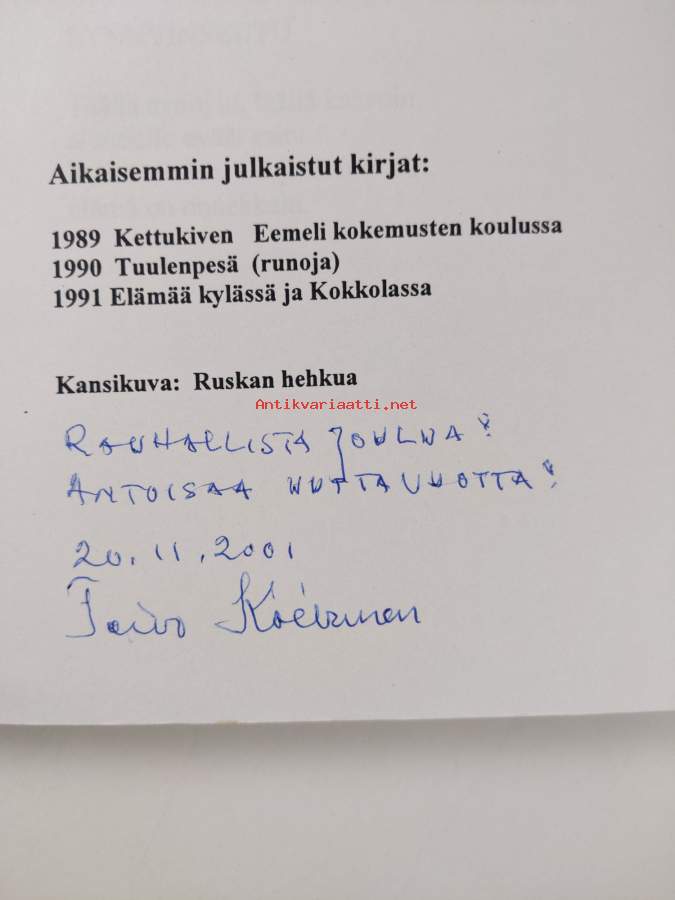 Aikaisemmin julkaistut kirjat:
1989 Kettukiven Eemeli kokemusten koulussa
1990 Tuulenpesä (runoja)
1991 Elämää kylässä ja Kokkolassa
Kansikuva: Ruskan hehkua
Antikvariaatti.net
RAUHALLISTA JOULUA!
ANTOISAA UUTTA VUOTTA!
20.11.2001